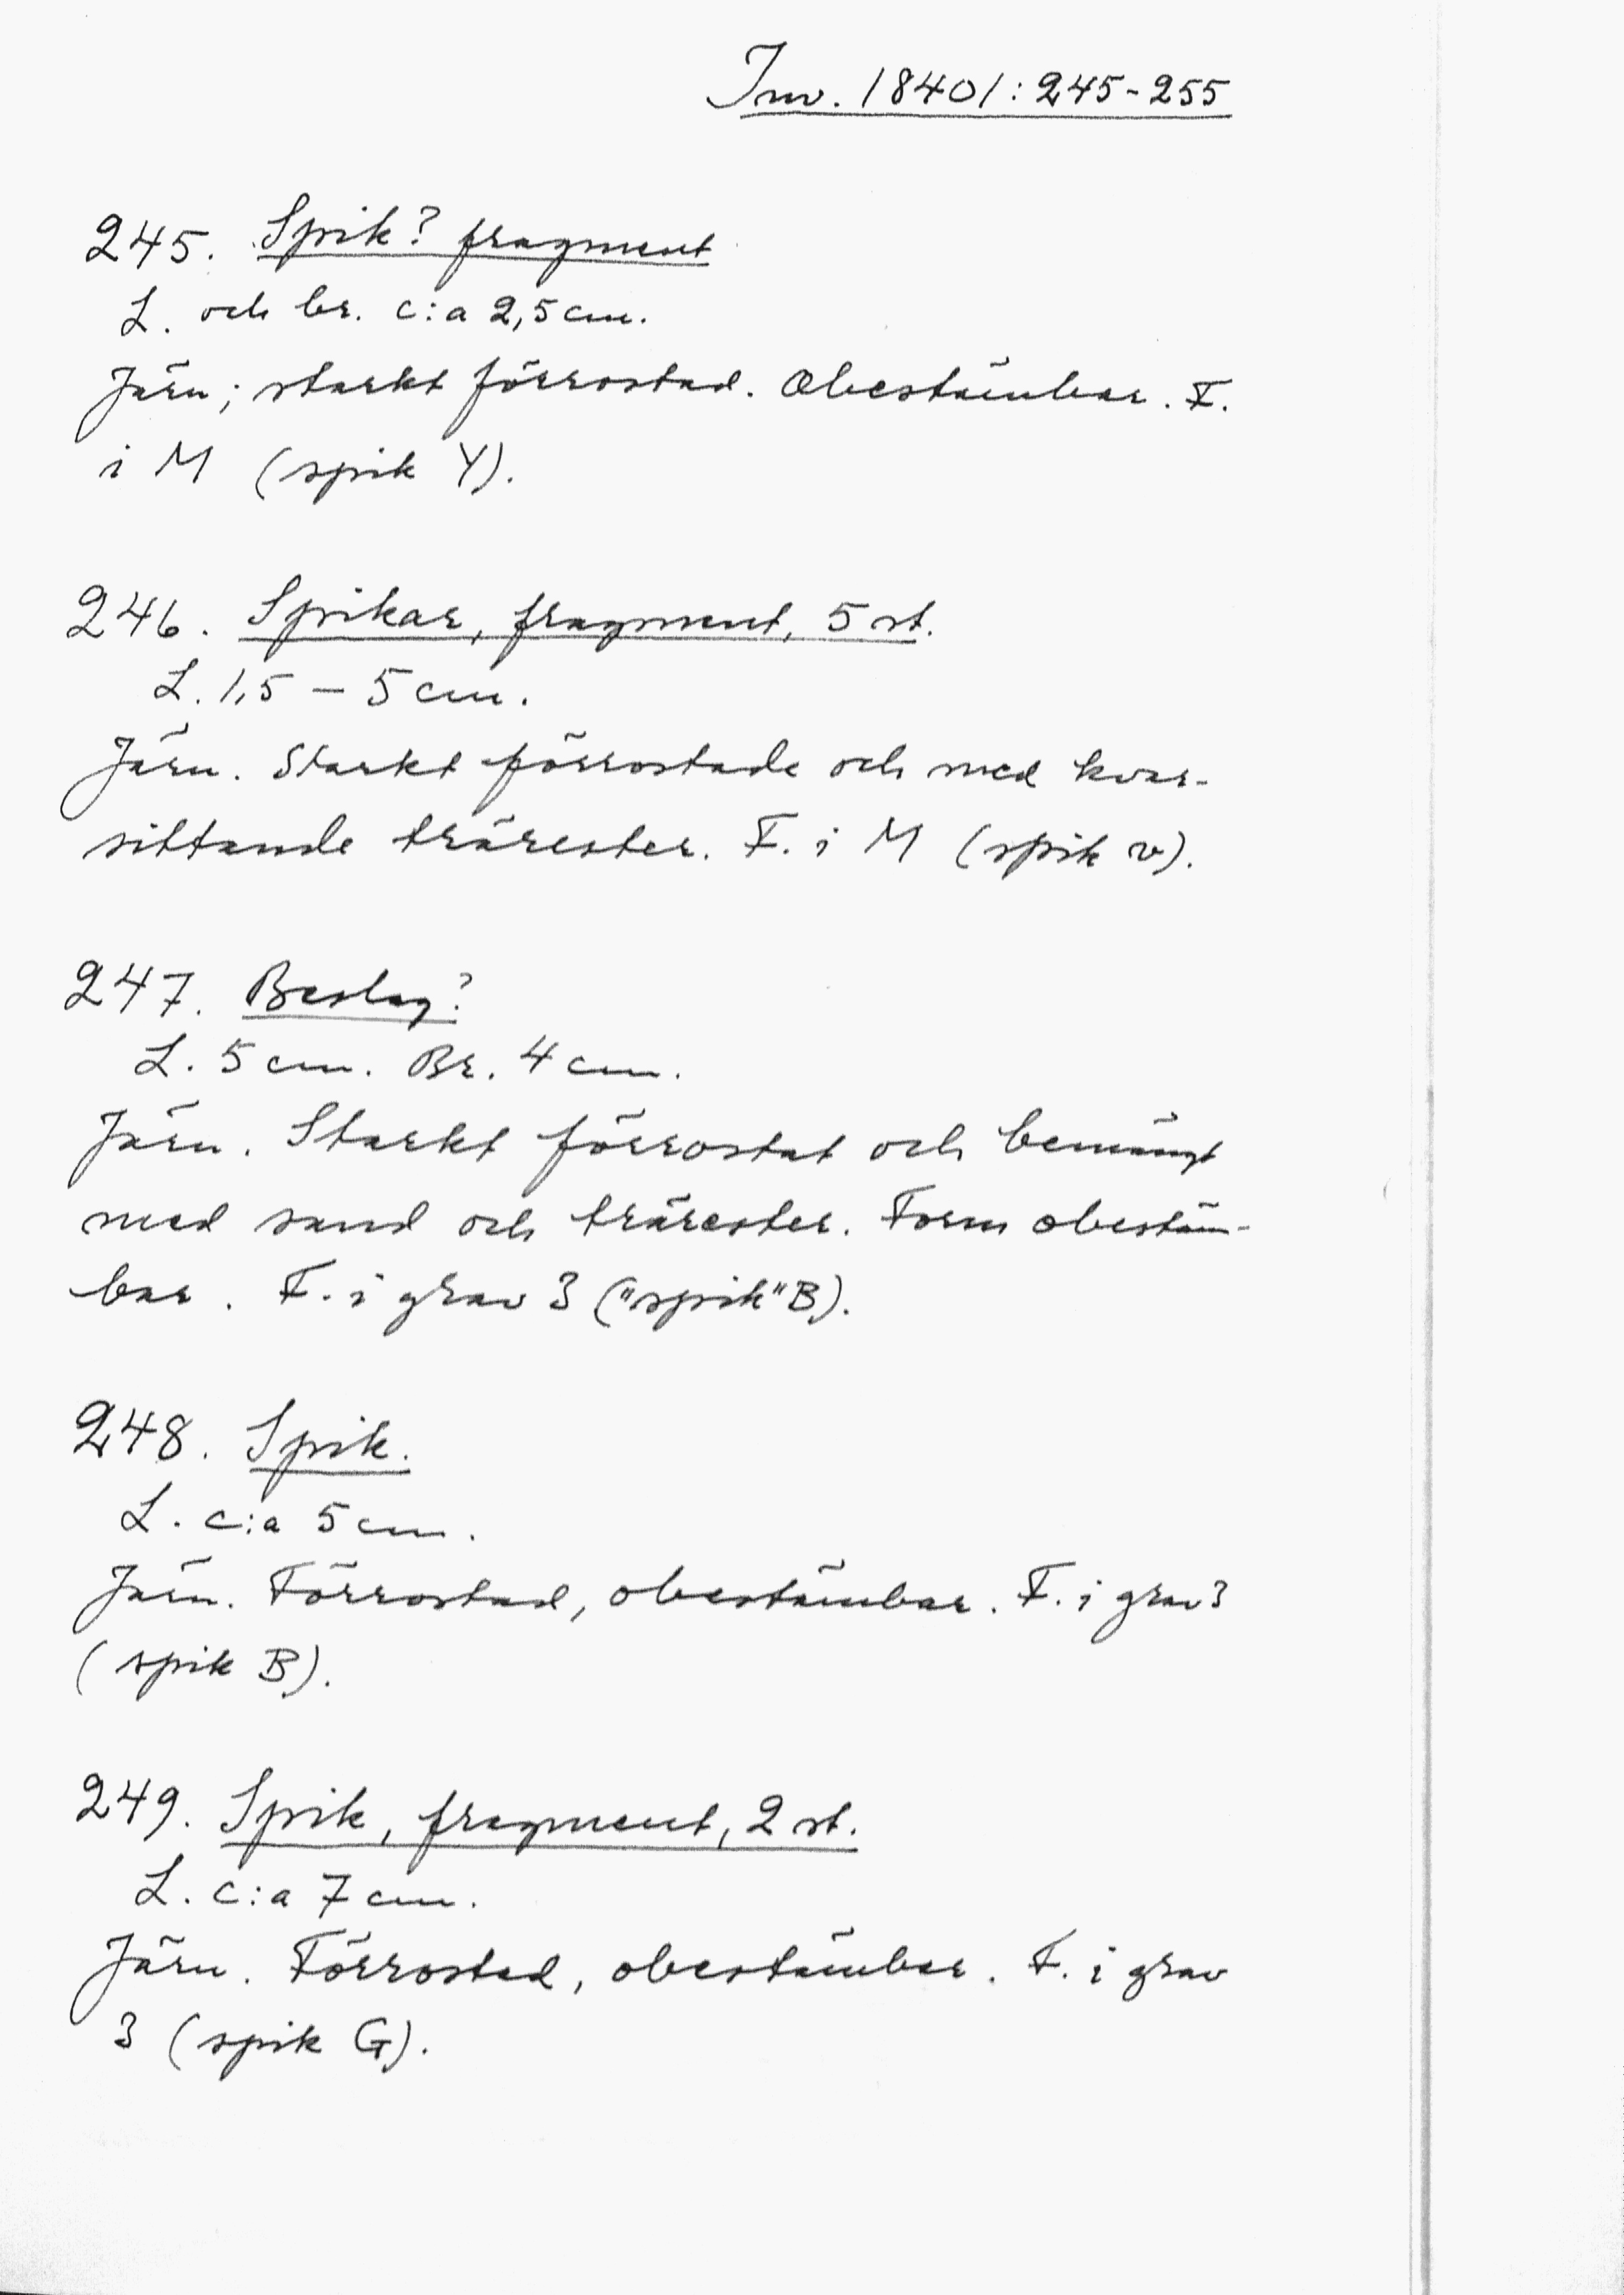 Inv. 18401: 245-255
245. Spik? fragment
L. och br. c:a 2,5 cm.
Järn; starkt förrostad. Obestämbar. F.
i M (spik Y).
246. Spikar, fragment, 5 st.
L. 1,5 – 5 cm.
Järn. Starkt förrostade och med kvar-
sittande trärester. F. i M (spik v).
247. Beslag?
L. 5 cm. Br. 4 cm.
Järn. Starkt förrostat och bemängt
med sand och trärester. Form obestäm-
bar. F. i grav 3 ("spik" B).
248. Spik.
L. c:a 5 cm.
Järn. Förrostad, obestämbar. F. i grav 3
(spik B).
249. Spik, fragment, 2 st.
L. c:a 7 cm.
Järn. Förrostad, obestämbar. F. i grav
3 (spik G).